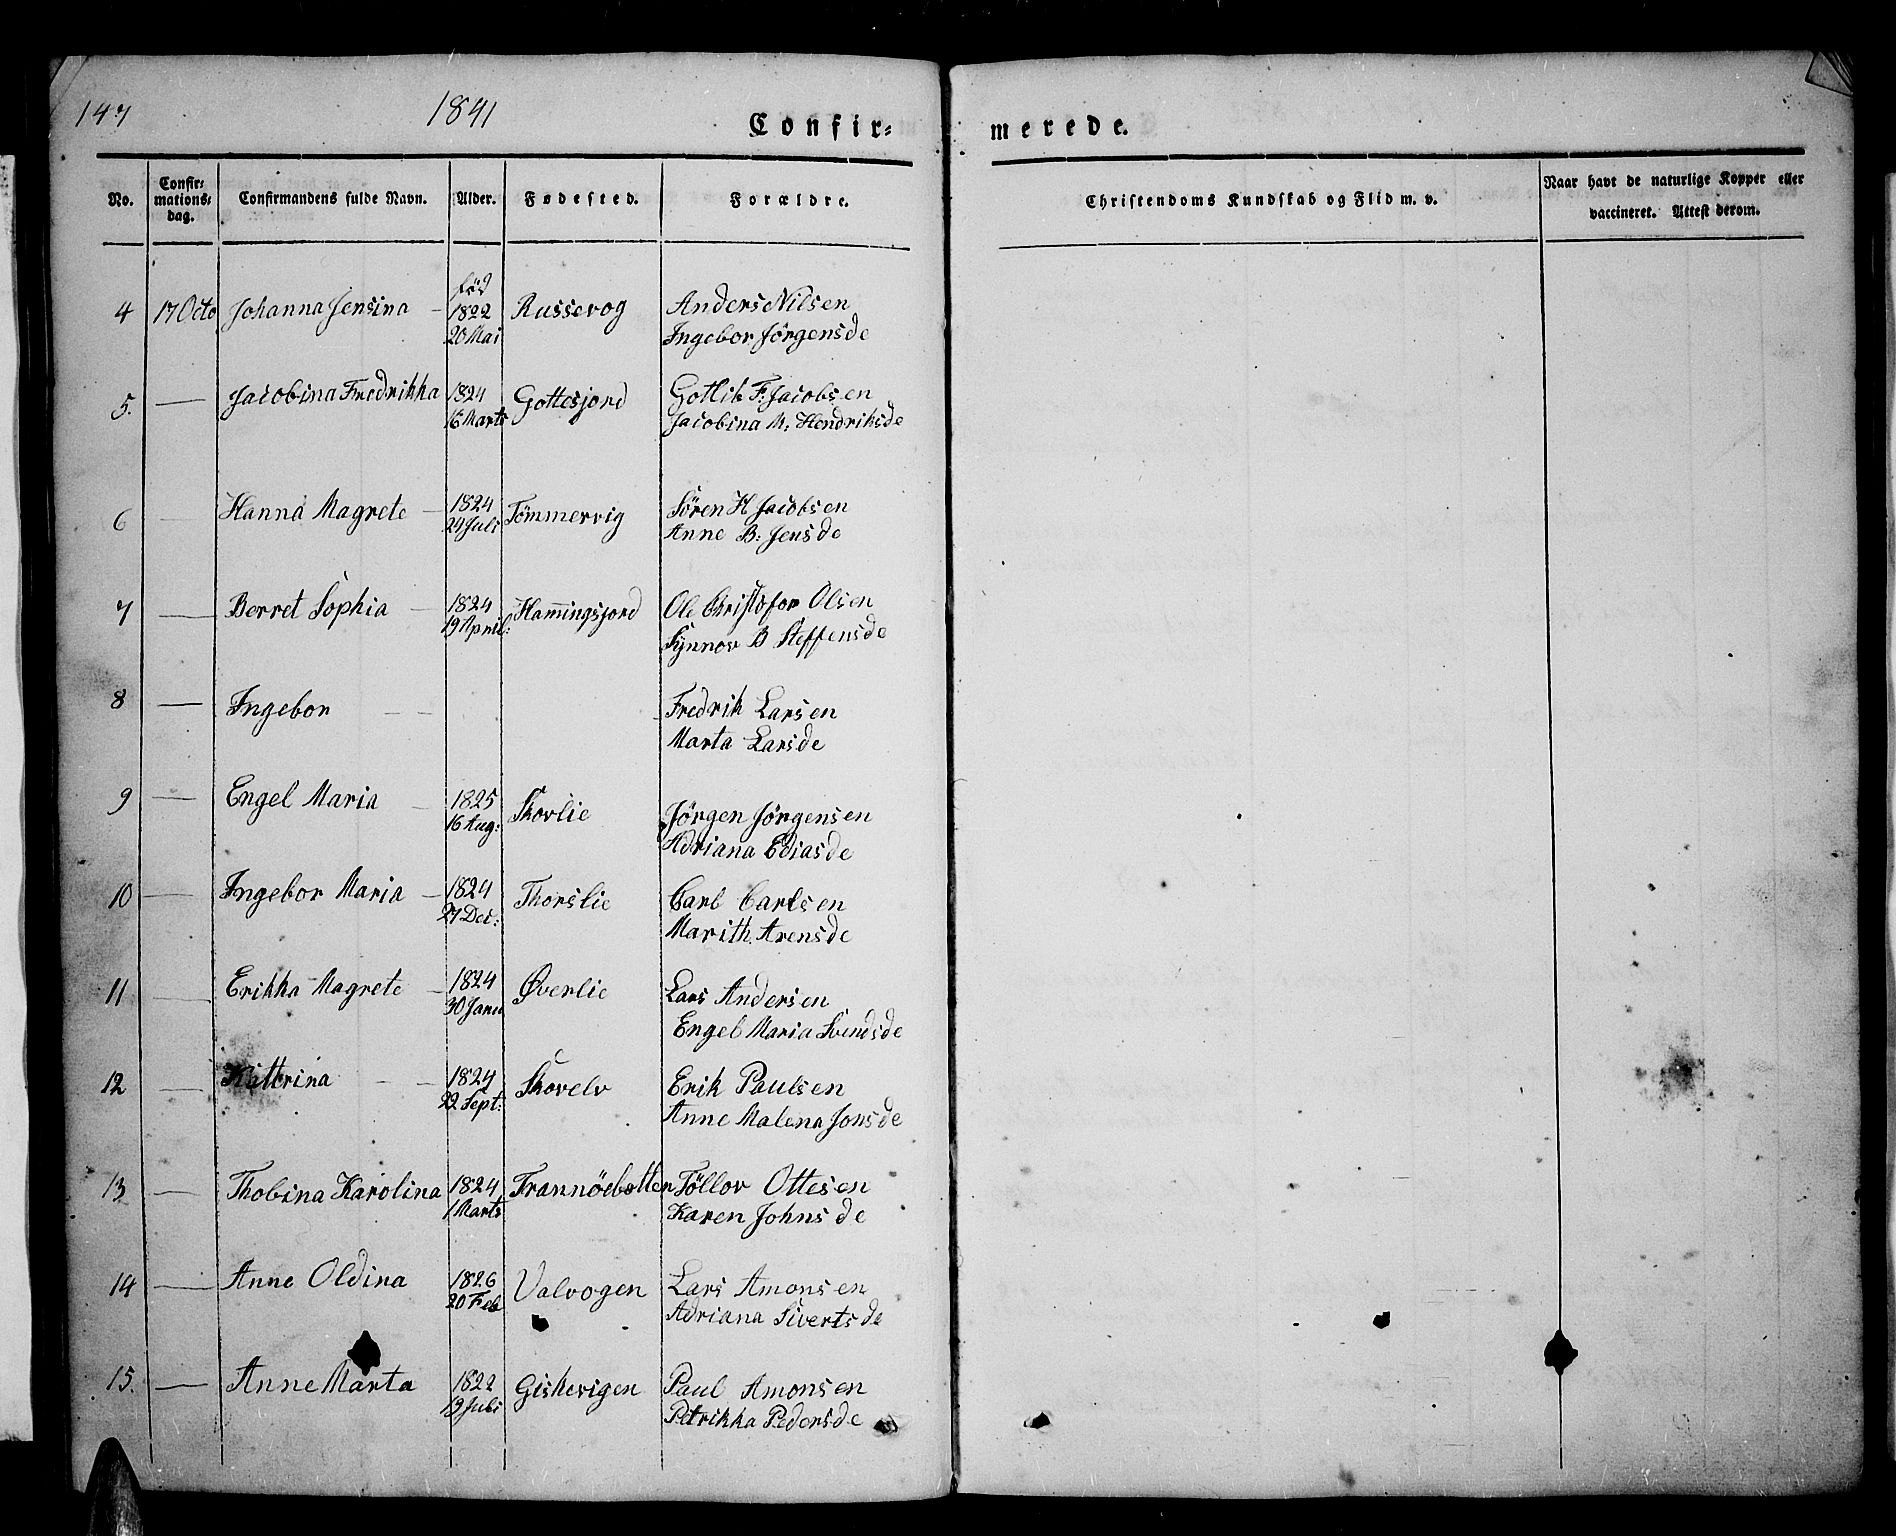 147 1841 Confir= merede.
No. Confir=mations=dag. Confirmandens fulde Navn. Alder. Fødested. Forældre. Christendoms Kundskab og Flid m. v. Naar havt de naturlige Kopper eller vaccineret. Attest derom.
fød
4 17 Octo Johanna Jensina – 1822 Russevog Anders Nilsen
20 Mai Ingebor Jörgensde
5. — Jacobina Fredrikka 1824 Gottesjord Gotlib F: Jacobsen
16 Marts Jacobina M: Hendriksde
6 — Hanna Magrete – 1824 Tömmervig Sören H Jacobsen
24 Juli Anne B: Jensde
7 — Berret Sophia – 1824 Hamingsjord Ole Christofor Olsen
19 April: Synnov B Steffensde
8 — Ingebor – – Fredrik Larsen
Marta Larsde
9 — Engel Maria – 1825 Skovlie Jörgen Jörgensen
16 Aug: Adriana Ediasde
10 — Ingebor Maria – 1824 Thorslie Carl Carlsen
27 Dec: Marith Arensde
11 — Erikka Magrete – 1824 Øverlie Lars Andersen
30 Janu Engel Maria Svendsde
12 — Kattrina – – 1824 Skovelv Erik Paulsen
22 Sept: Anne Malena Jonsde
13 — Thobina Karolina 1824 Trannöebotten Töllov Ottesen
1 Marts Karen Johnsde
14 — Anne Oldina 1826 Valvogen Lars Amonsen
20 Feb Adriana Sivertsde
15. — Anne Marta 1822 Giskevigen Paul Amonsen
19 Juli Petrikka Pedersde